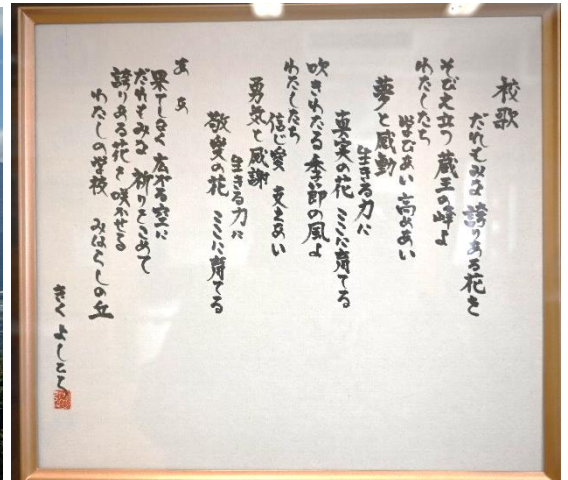 校歌
だれもみな 誇りある花を
そびえ立つ 蔵王の峰よ
わたしたち
学びあい 高めあい
夢と感動
生きる力に
真実の花 ここに育てる
吹きわたる 季節の風よ
わたしたち
信じ愛 支えあい
勇気と感謝
生きる力に
敬愛の花 ここに育てる
ああ
果てしなく 広がる空に
だれもみな 祈りをこめて
誇りある花を 咲かせる
わたしの学校 みはらしの丘
きく よしとも